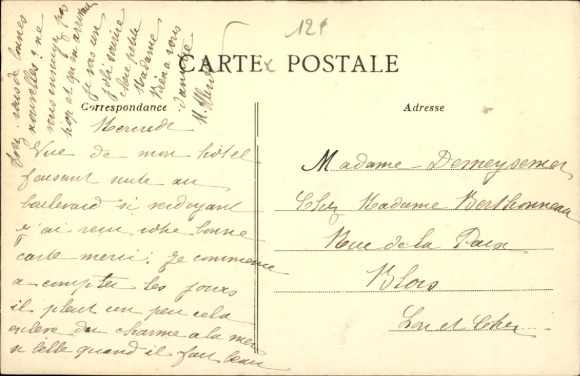 121
CARTE POSTALE
Correspondance
Adresse
Mercredi
Vue de mon hôtel
faisant suite au
boulevard si verdoyant
j'ai reçu votre bonne
carte merci ; je commence
a compter les jours
il pleut un peu cela
enlève du charme a la mer
si belle quand il fait beau
de bonnes
nouvelles ? ne
vous ennuyez pas
trop et qu'en arrivant
je vois un
joli sourire
chère petite
Madame
Bien a vous
Madame
Chez Madame Berthonneau
Rue de la Paix
Blois
Loir et Cher